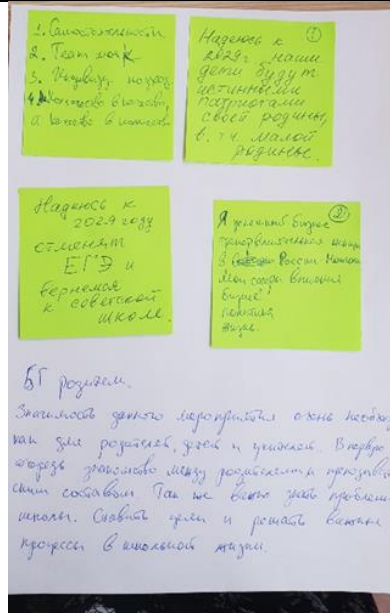 1. Самостоятельность
2. Team work
3. Индивид. подход
4. Количество в качество,
а качество в количество
①
Надеюсь к
2029г. наши
дети будут
истинными
патриотами
своей родины,
в т.ч. малой
родины.
Надеюсь к
2029 году
отменят
ЕГЭ и
вернемся
к советской
школе.
②
Я
бизнес
в России
Мои
бизнес
политика
жизнь.
БГ родители.
Значимость данного мероприятия очень необход
как для родителей, детей и учителей. В первую
очередь знакомство между родителями и преподава
ским составом. Так же важно знать проблемы
школы. Ставить цели и решать важные
процессы в школьной жизни.